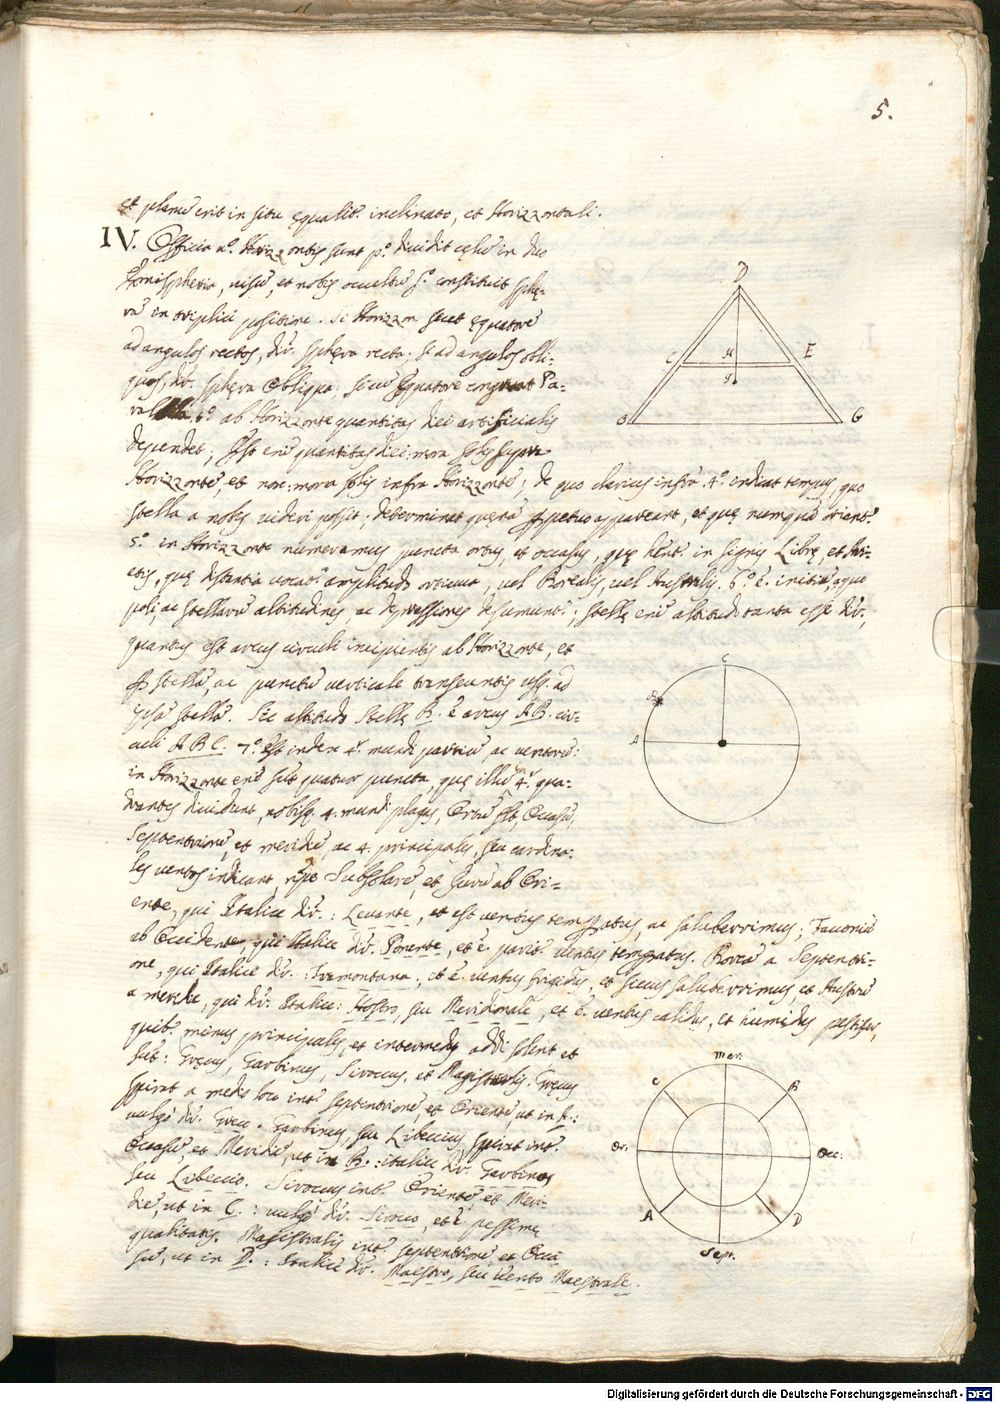 5.
et planũ erit in situ ęqualit. inclinato, et Horizzontali.
IV. Officia nō. Horizzontis sunt pº. dividit cęlũ in duo
Hemispheria, visũ, et nobis occultũ sº. constituit sphę-
rã in triplici positione. Si Horizzon secet ęquatorẽ
ad angulos rectos, dr̃. sphęra recta; si ad angulos obli-
quos, dr̃. sphęra obliqua; sicũ Ęquatore congruat Pa-
ralella. ab Horizzonte quantitas diei artificialis
dependet; Est enĩ quantitas diei: mora solis supra
Horizzontẽ, et noc: mora solis infra Horizzontẽ; de quo clavius infra. 4º. indicat tempus, quo
stella a nobis videri possit; determinat quęnã appareant, et quę numquã orient.
5º. in Horizzonte numeramus puncta ortus, et occasus, quę hẽnt. in signis Librę, et Ari-
etis, quę distantia vocat. amplitudo ortiva, vel Borealis, vel Australis. 6º. ẽ. initiũ, a quo
poli, ac stellarũ altitudines, ac depressiones desumunt.; stellę enĩ altitudo tanta esse dr̃.
quantus est arcus circuli incipientis ab Horizzonte, et
p stellã, ac punctũ verticale transeuntis usq. ad
ipsã stellã. Sic altitudo stellę B. ẽ arcus AB. cir-
culi ABC. 7º. est index 4. mundi partiũ, ac ventorũ:
in Horizzonte enĩ sũt quatuor puncta, quę illũ in 4. qua-
drantes dividunt, nobisq. 4. mundi plagas, Ortũ, Occasũ,
Septentrionẽ, et meridiẽ, ac 4. principales, seu cardina-
les ventos indicant, Subsolanũ, et Eurũ ab Ori-
ente, qui Italice dr̃.: Levante, et est ventus tempatus, ac saluberrimus; Favoniũ
ab Occidente, qui Italice dr̃. Ponente, et ẽ. parit. ventus tempatus. Boreã a Septentri-
one, qui Italice dr̃.: Tramontana, et ẽ. ventus frigidus, et siccus saluberrimus, et Austrũ
a meridie, qui dr̃. Italice: Hostro, seu Meridionale, et ẽ. ventus calidus, et humidus pestifer,
quib. minus principales, et intermedij addi solent et
sũt: Gręcus, Garbinus, Sirocus, et Magistralis. Gręcus
spirat a medio loco int. septentrionẽ et Orientẽ, ut in A.:
vulgo dr̃. Greco. Garbinus, seu Libeccius, spirat int.
Occasũ, et Meridiẽ, ut in B.: italice dr̃. Garbino,
seu Libeccio. Sirocus int. Orientẽ, et Meri-
diẽ, ut in C.: vulgo dr̃. Sirocco, et ẽ. pessimę
qualitatis. Magistralis int. septentrionẽ, et Occa
sũ, ut in D.: Italice dr̃. Maestro, seu vento Maestrale.
D
C
H
E
F
B
G
C
B
A
Mer:
C
B
Or:
Occ:
A
D
Sept.
Digitalisierung gefördert durch die Deutsche Forschungsgemeinschaft - DFG